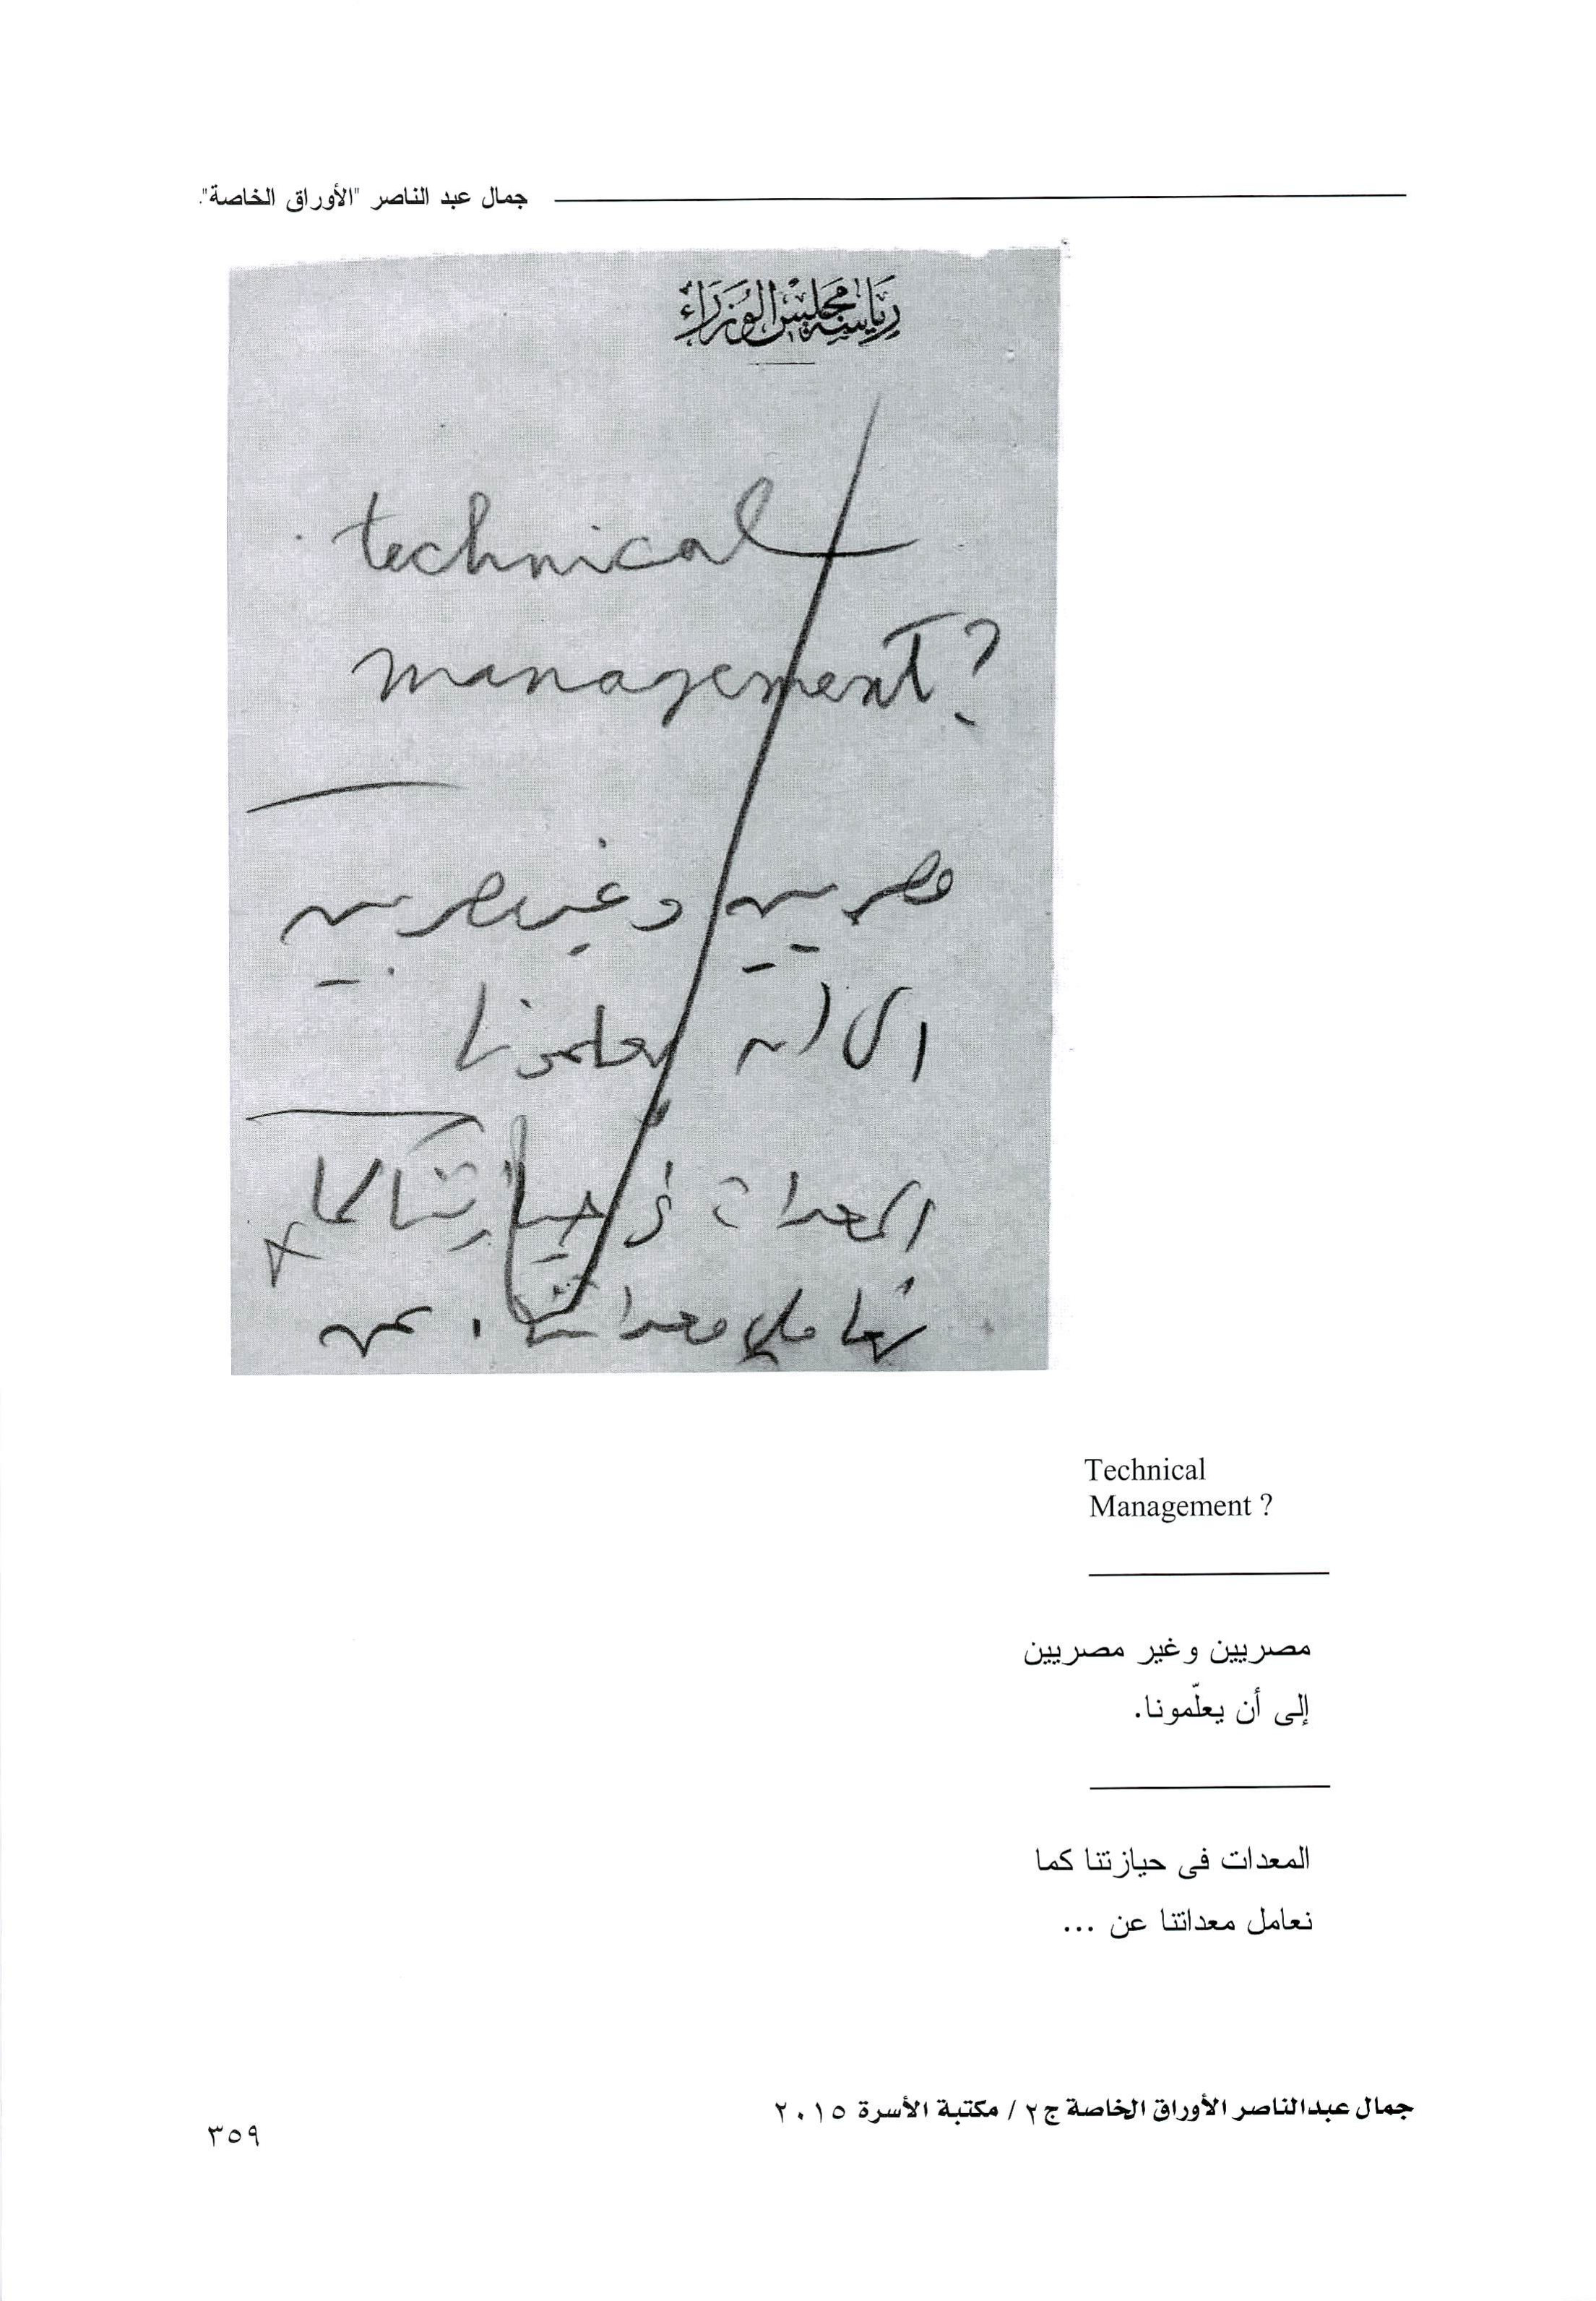 جمال عبد الناصر "الأوراق الخاصة".
رياسة مجلس الوزراء
technical
management?
مصريين وغير مصريين
الى ان يعلمونا
المعدات في حيازتنا كما
نعامل معداتنا . عن
Technical
Management ?
مصريين وغير مصريين
إلى أن يعلّمونا.
المعدات فى حيازتنا كما
نعامل معداتنا عن ...
جمال عبدالناصر الأوراق الخاصة ج٢ / مكتبة الأسرة ٢٠١٥
٣٥٩